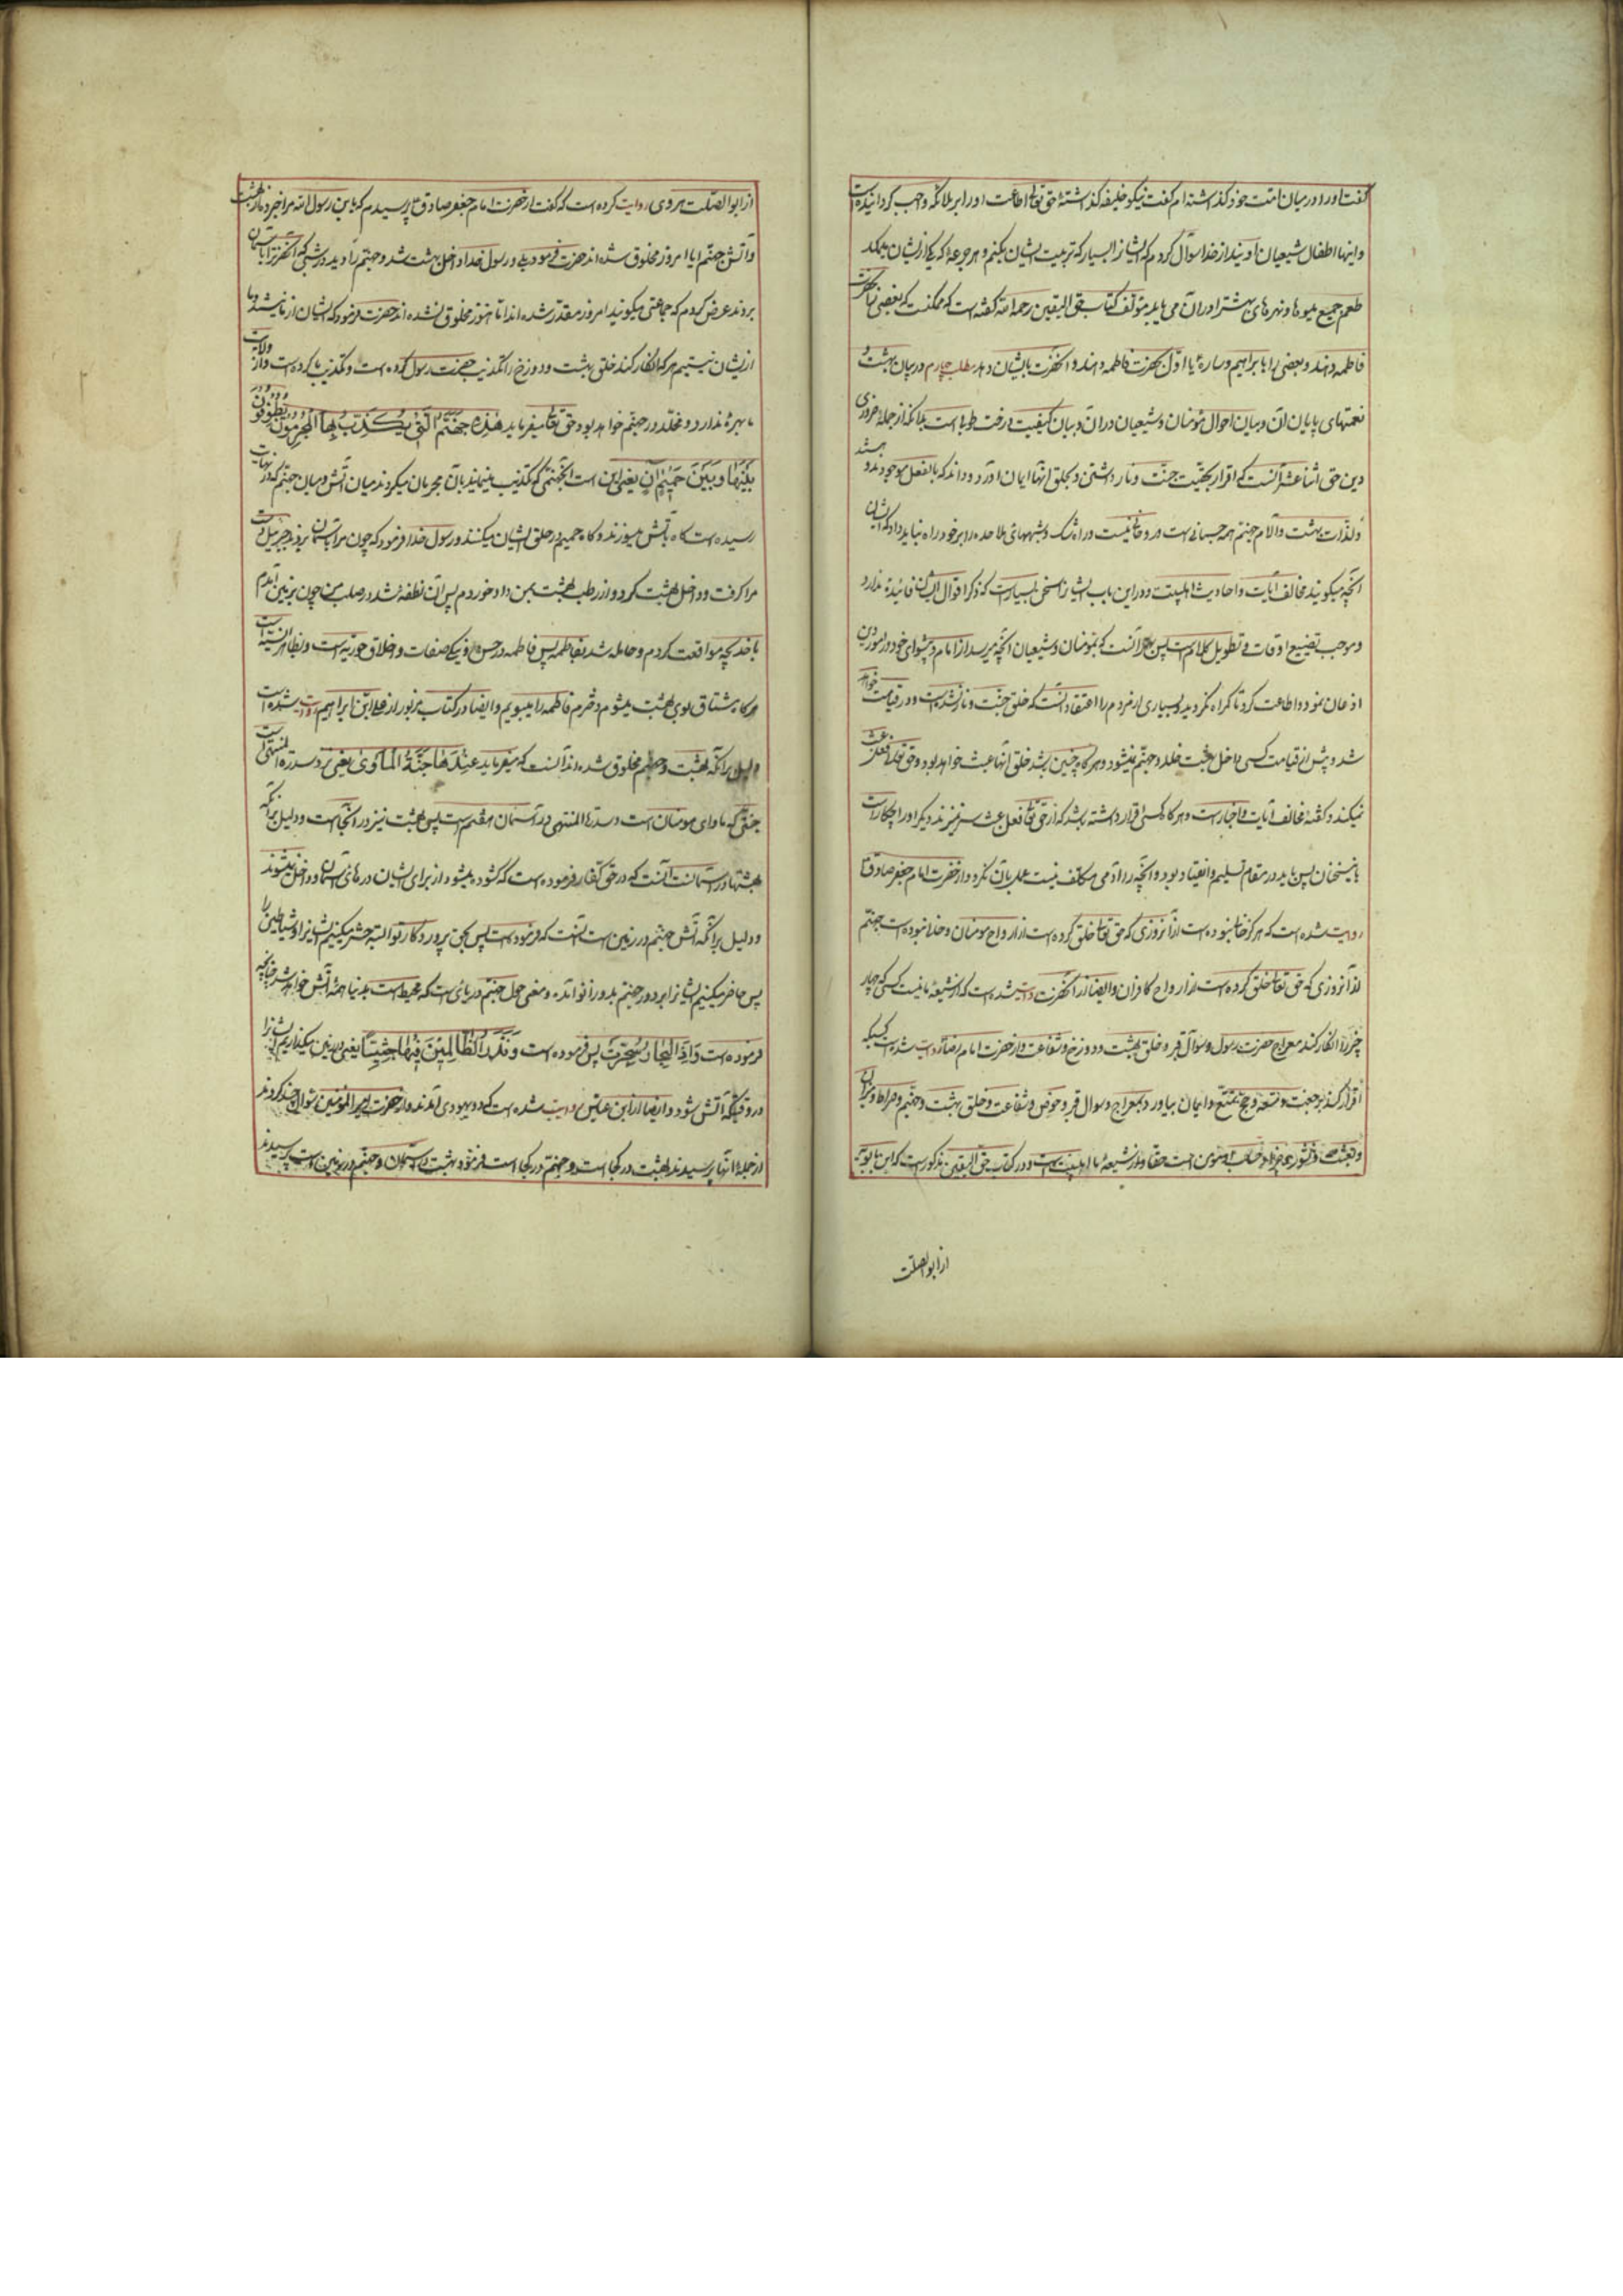 گفت اورا در میان امت خود گذاشته ام گفت نیکو خلیفه گذاشتهٔ حق تعالی اطاعت اورا بر ملائکه واجب گردانیده است
واینها اطفال شیعیان اویند از خدا سؤال کردم که ایشانرا بمن بسپارد که تربیت ایشان بکنم و هر جرعهٔ که یکی از ایشان میمکد
طعم جمیع میوها و نهرهای بهشت را در آن می یابد مؤلف کتاب حق الیقین رحمه الله گفته است که ممکنست که بعضی را بحضرت
فاطمه دهند و بعضی را بابراهیم و ساره یا اول بحضرت فاطمه دهند و آنحضرت بایشان دهد مطلب چهارم در بیان بهشت و
نعمتهای بی پایان آن و بیان احوال مؤمنان و شیعیان در آن و بیان کیفیت درخت طوبی است بدانکه از جملهٔ ضروری
دین حق اثنا عشر آنست که اقرار بحقیت جنت و نار داشتن و بخلق آنها ایمان آورد و داند که بالفعل موجودند هستند
ولذات بهشت والام جهنم همه جسمانی است و روحانی نیست و در او شک و شبههای ملاحده را بر خود راه نباید داد که ایشان
آنچه میگویند مخالف آیات و احادیث اهلبیت و در این باب ایشانرا سخن بسیار است که ذکر اقوال ایشان فائیده ندارد
و موجب تضییع اوقات و تطویل کلام است پس بهتر آنست که مؤمنان و شیعیان آنچه میرسد از امام و پیشوای خود در امور دین
اذعان نمود و اطاعت کرد تا گمراه نگردید و بسیاری از مردم را اعتقاد آنست که خلق جنت و نار نشده است و در قیامت خواهد
شد و پیش از قیامت کسی داخل بهشت خلد و جهنم نمیشود و هرگاه چنین باشد خلق آنها عبث خواهد بود و حق تعالی فعل عبث
نمیکند و گفته مخالف آیات و اخبار است و هرگاه کسی اقرار داشته باشد که از حق تعالی فعل عبث سر نمیزند دیگر اورا چکار است
باینسخنان پس باید در مقام تسلیم و انقیاد بود و آنچه را آدمی مکلف نیست عمل بآن نکرد و از حضرت امام جعفر صادق ع
روایت شده است که هرگز خالی نبوده است از آنروزی که حق تعالی خلق کرده است از ارواح مومنان و خالی نبوده است جهنم
از آنروزی که حق تعالی خلق کرده است از ارواح کافران و ایضا از آنحضرت روایت شده است که از شیعهٔ ما نیست کسی که چهار
چیز را انکار کند معراج حضرت رسول و سوآل قبر و خلق بهشت و دوزخ و شفاعت و از حضرت امام رضا روایت شده است کسیکه
اقرار کند برجعت و متعه و حج تمتع و ایمان بیاورد بمعراج و سوال قبر و حوض و شفاعت و خلق بهشت و جهنم و صراط و میزان
و بعث و نشور و جزا و حساب او مؤمن است حقا و از شیعهٔ ما اهلبیت است و در کتاب حق الیقین مذکور است که ابن بابویه
از ابوالصلت
از ابوالصلت هروی روایت کرده است که گفت از حضرت امام جعفر صادق ع پرسیدم که یابن رسول الله مرا خبر ده از بهشت
و آتش جهنم ایا امروز مخلوق شده اند حضرت فرمود بلی و رسول خدا داخل بهشت شد و جهنم را دید در شبی که آنحضرترا بآسمان
بردند عرض کردم که جماعتی میگویند امروز مقدر شده اند اما هنوز مخلوق نشده اند حضرت فرمود که ایشان از ما نیستند و ما
از ایشان نیستیم هر که انکار کند خلق بهشت و دوزخ را تکذیب حضرت رسول کرده است و تکذیب ما کرده است و از ولایت
ما بهرهٔ ندارد و مخلد در جهنم خواهد بود حق تعالی میفرماید هٰذِهِ جَهَنَّمُ الَّتی یُکَذِّبُ بِهَا الْمُجْرِمُونَ یَطُوفُونَ
بَیْنَهَا وَبَیْنَ حَمِیمٍ آنٍ یعنی این است آنجهنمی که تکذیب مینمایند بآن مجرمان میگردند میان آتش و میان جهنم که در نهایت
رسیده است گاه بآتش میسوزند و گاه حمیم در حلق ایشان میکنند و رسول خدا فرمود که چون مرا بآسمان بردند جبرئیل دست
مرا گرفت و داخل بهشت کرد و از رطب بهشت بمن داد خوردم پس آن نطفه شد در صلب من چون بزمین آمدم
با خدیجه مواقعت کردم و حامله شد بفاطمه پس فاطمه در حسن و نیکی صفات و اخلاق حوریه است و بظاهر انسیه است
هرگاه مشتاق بوی بهشت میشوم دخترم فاطمه را میبویم و ایضا در کتاب مزبور از علی ابن ابراهیم روایت شده است
دلیل برانکه بهشت و جهنم مخلوق شده اند آنست که میفرماید عِنْدَهَا جَنَّةُ الْمَأْوٰی یعنی نزد سدرة المنتهی است
جنتی که ماوای مومنان است و سدرة المنتهی در آسمان هفتم است پس بهشت نیز در آنجا است و دلیل برانکه
بهشتها در آسمانست آنست که در حق کفار فرموده است که گشوده نمیشود از برای ایشان درهای آسمان و داخل نمیشوند
و دلیل برانکه آتش جهنم در زمین است آنست که فرموده است پس بحق پروردگار تو البته حشر میکنیم ایشانرا و شیاطین را
پس حاضر میکنیم ایشانرا بر دور جهنم بدو زانو آمده و معنی حول جهنم دریائی است که محیط است بدنیا همهٔ آتش خواهد شد چنانچه
فرموده است وَاِذَا الْبِحَارُ سُجِّرَتْ پس فرموده است وَنَذَرُ الظَّالِمِینَ فِیهَا جِثِیًّا یعنی در زمین میگذاریم ایشانرا
در وقتیکه آتش شود و ایضا از ابن عباس روایت شده است که دو یهودی آمدند و از حضرت امیر المؤمنین سوال چند کردند
از جملهٔ آنها پرسیدند بهشت در کجا است و جهنم در کجا است فرمود بهشت در آسمان و جهنم در زمین است پرسیدند